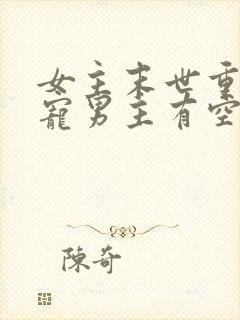 女主末世重
寵男主有空
陳奇